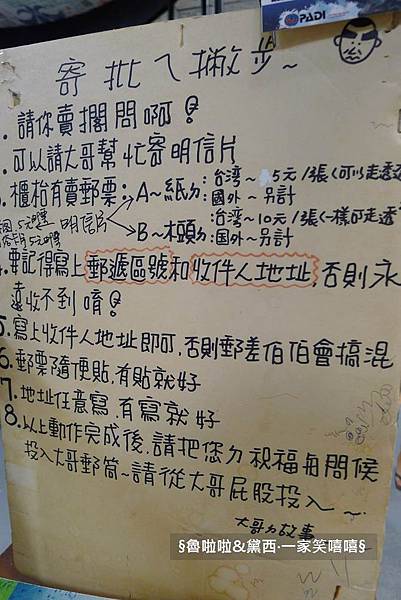 PADI
寄批ㄟ撇步~
. 請你賣擱問啊!
. 可以請大哥幫忙寄明信片
. 櫃枱有賣郵票:
明信片
A~紙ㄉ: 台湾~5元/張(可以走透透
國外~另計
B~木頭ㄉ: 台湾~10元/張(一樣可走透
国外~另計
4. 要記得寫上郵遞區號和收件人地址,否則永
遠收不到唷!
5. 寫上收件人地址即可,否則郵差伯伯會搞混
6. 郵票隨便貼,有貼就好
7. 地址任意寫,有寫就好
8. 以上動作完成後,請把您ㄉ祝福與問候
投入大哥郵筒~請從大哥屁股投入~
大哥ㄉ故事
§魯啦啦&黛西.一家笑嘻嘻§